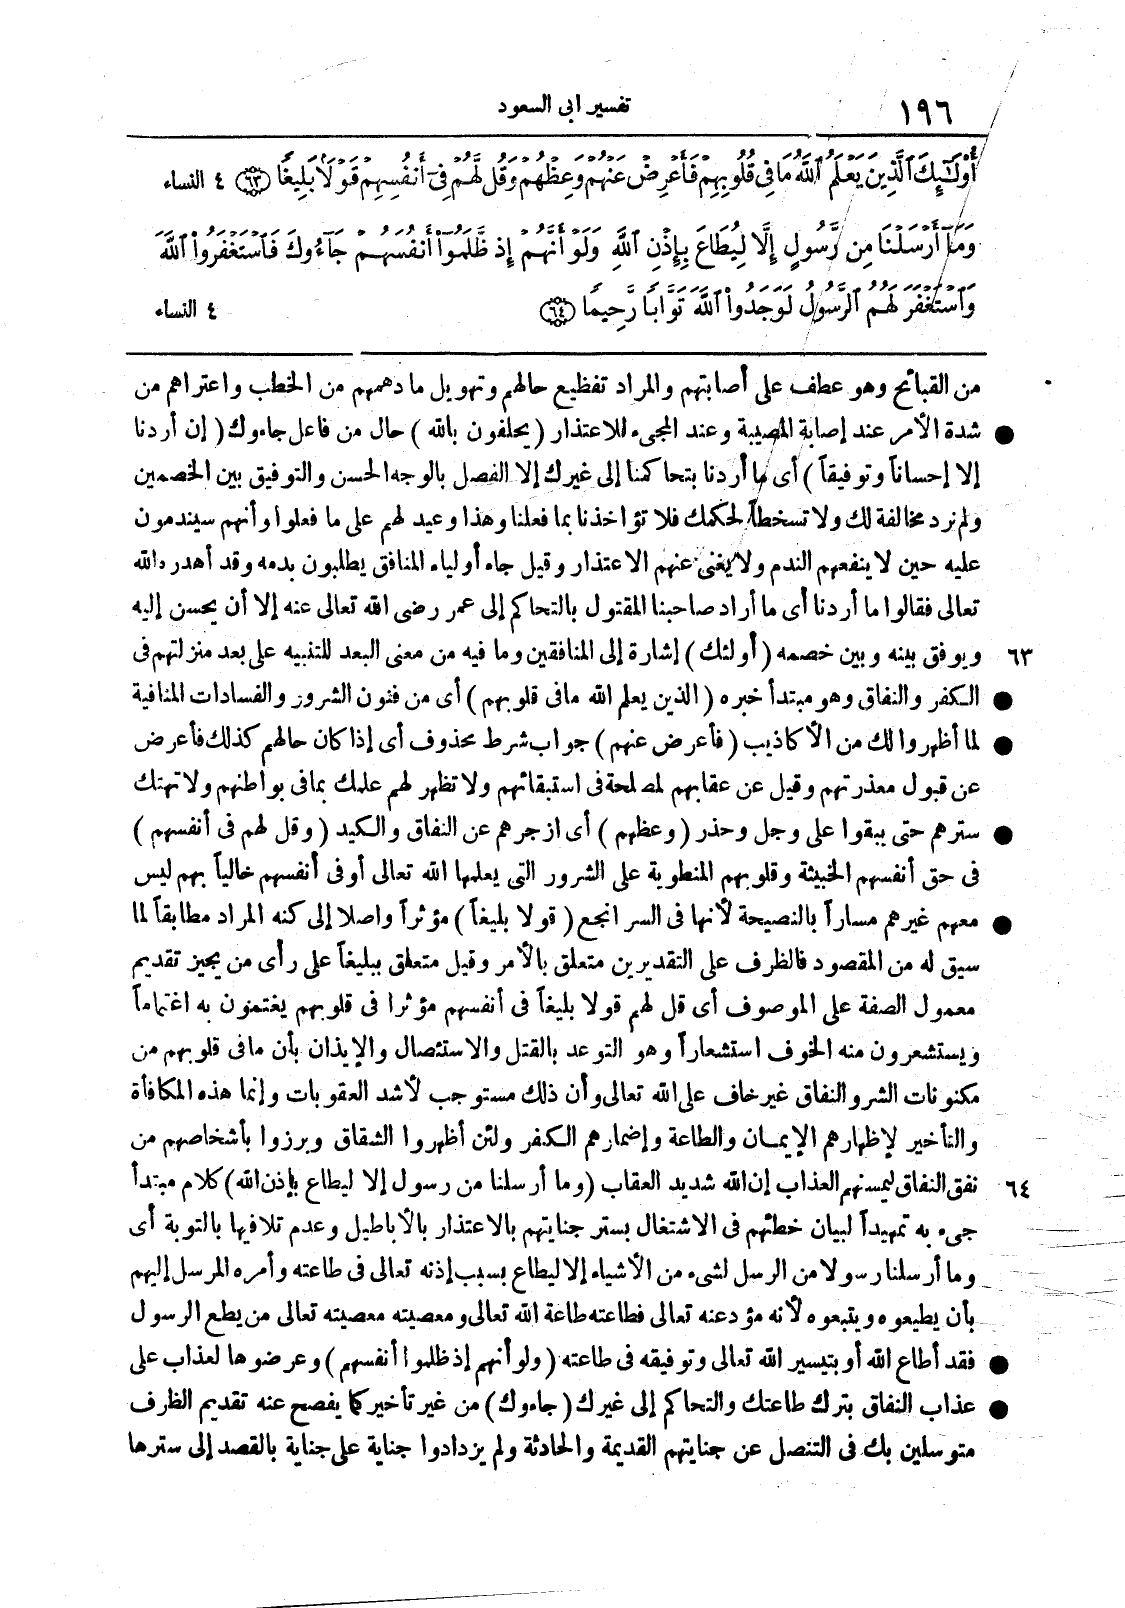 ١٩٦
تفسير ابى السعود
أُوْلَٰٓئِكَ ٱلَّذِينَ يَعْلَمُ ٱللَّهُ مَا فِى قُلُوبِهِمْ فَأَعْرِضْ عَنْهُمْ وَعِظْهُمْ وَقُل لَّهُمْ فِىٓ أَنفُسِهِمْ قَوْلَۢا بَلِيغًا ﴿٦٣﴾ ٤ النساء
وَمَآ أَرْسَلْنَا مِن رَّسُولٍ إِلَّا لِيُطَاعَ بِإِذْنِ ٱللَّهِ وَلَوْ أَنَّهُمْ إِذ ظَّلَمُوٓاْ أَنفُسَهُمْ جَآءُوكَ فَٱسْتَغْفَرُواْ ٱللَّهَ
وَٱسْتَغْفَرَ لَهُمُ ٱلرَّسُولُ لَوَجَدُواْ ٱللَّهَ تَوَّابًا رَّحِيمًا ﴿٦٤﴾ ٤ النساء
من القبائح وهو عطف على أصابتهم والمراد تفظيع حالهم وتهويل ما دهمهم من الخطب واعتراهم من
● شدة الأمر عند إصابة المصيبة وعند المجىء للاعتذار ( يحلفون بالله ) حال من فاعل جاءوك ( إن أردنا
إلا إحساناً وتوفيقاً ) أى ما أردنا بتحاكمنا إلى غيرك إلا الفصل بالوجه الحسن والتوفيق بين الخصمين
ولم نرد مخالفة لك ولا تسخطاً لحكمك فلا تؤاخذنا بما فعلنا وهذا وعيد لهم على ما فعلوا وأنهم سيندمون
عليه حين لا ينفعهم الندم ولا يغنى عنهم الاعتذار وقيل جاء أولياء المنافق يطلبون بدمه وقد أهدره الله
تعالى فقالوا ما أردنا أى ما أراد صاحبنا المقتول بالتحاكم إلى عمر رضى الله تعالى عنه إلا أن يحسن إليه
٦٣ ويوفق بينه وبين خصمه ( أولئك ) إشارة إلى المنافقين وما فيه من معنى البعد للتنبيه على بعد منزلتهم فى
● الكفر والنفاق وهو مبتدأ خبره ( الذين يعلم الله مافى قلوبهم ) أى من فنون الشرور والفسادات المنافية
● لما أظهروا لك من الأكاذيب ( فأعرض عنهم ) جواب شرط محذوف أى إذا كان حالهم كذلك فأعرض
عن قبول معذرتهم وقيل عن عقابهم لمصلحة فى استبقائهم ولا تظهر لهم علمك بمافى بواطنهم ولا تهتك
● سترهم حتى يبقوا على وجل وحذر ( وعظهم ) أى ازجرهم عن النفاق والكيد ( وقل لهم فى أنفسهم )
فى حق أنفسهم الخبيثة وقلوبهم المنطوية على الشرور التى يعلمها الله تعالى أو فى أنفسهم خالياً بهم ليس
● معهم غيرهم مساراً بالنصيحة لأنها فى السر انجع ( قولا بليغاً ) مؤثراً واصلا إلى كنه المراد مطابقاً لما
سيق له من المقصود فالظرف على التقديرين متعلق بالأمر وقيل متعلق ببليغاً على رأى من يجيز تقديم
معمول الصفة على الموصوف أى قل لهم قولا بليغاً فى أنفسهم مؤثرا فى قلوبهم يغتمون به اغتماماً
ويستشعرون منه الخوف استشعاراً وهو التوعد بالقتل والاستئصال والإيذان بأن مافى قلوبهم من
مكنونات الشر والنفاق غير خاف على الله تعالى وأن ذلك مستوجب لأشد العقوبات وإنما هذه المكافأة
والتأخير لإظهارهم الإيمان والطاعة وإضمارهم الكفر ولئن أظهروا الشقاق وبرزوا بأشخاصهم من
٦٤ نفق النفاق ليمسنهم العذاب إن الله شديد العقاب ( وما أرسلنا من رسول إلا ليطاع بإذن الله ) كلام مبتدأ
جىء به تمهيداً لبيان خطئهم فى الاشتغال بستر جنايتهم بالاعتذار بالأباطيل وعدم تلافيها بالتوبة أى
وما أرسلنا رسولا من الرسل لشىء من الأشياء إلا ليطاع بسبب إذنه تعالى فى طاعته وأمره المرسل إليهم
بأن يطيعوه ويتبعوه لأنه مؤد عنه تعالى فطاعته طاعة الله تعالى ومعصيته معصيته تعالى من يطع الرسول
● فقد أطاع الله أو بتيسير الله تعالى وتوفيقه فى طاعته ( ولو أنهم إذ ظلموا أنفسهم ) وعرضوها لعذاب على
● عذاب النفاق بترك طاعتك والتحاكم إلى غيرك ( جاءوك ) من غير تأخير كما يفصح عنه تقديم الظرف
متوسلين بك فى التنصل عن جنايتهم القديمة والحادثة ولم يزدادوا جناية على جناية بالقصد إلى سترها